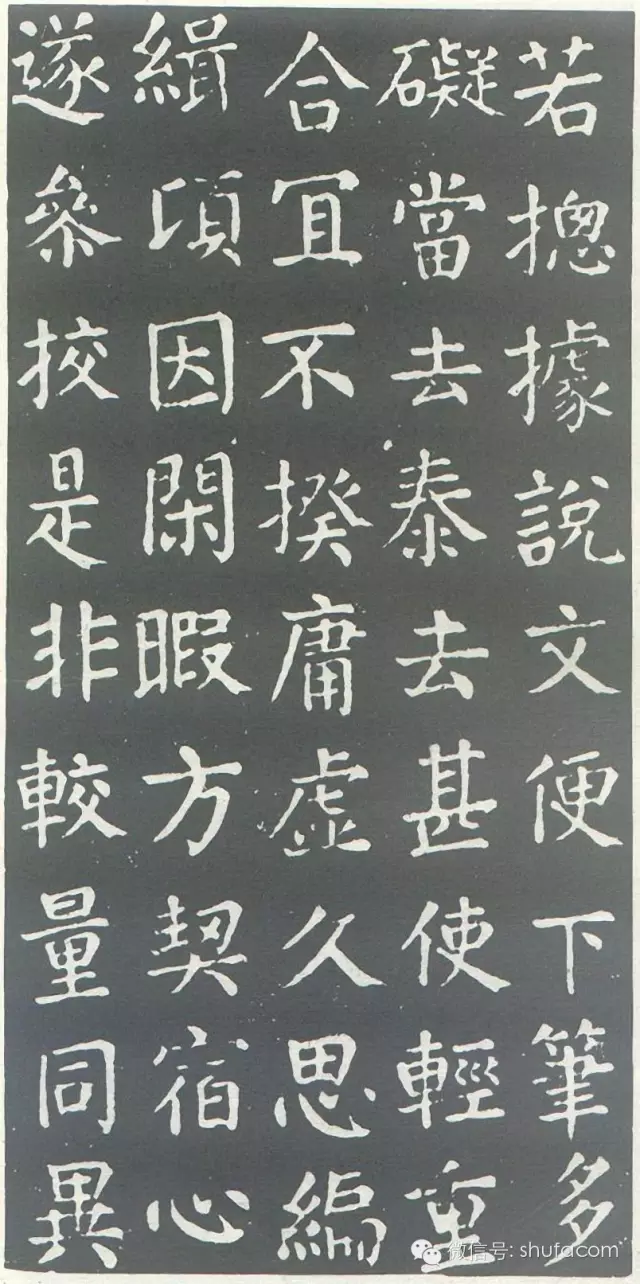 若揔據說文便下筆多
礙當去泰去甚使輕重
合冝不揆庸虛久思編
緝頃因閑暇方契宿心
遂叅挍是非較量同異
微信号: shufacom